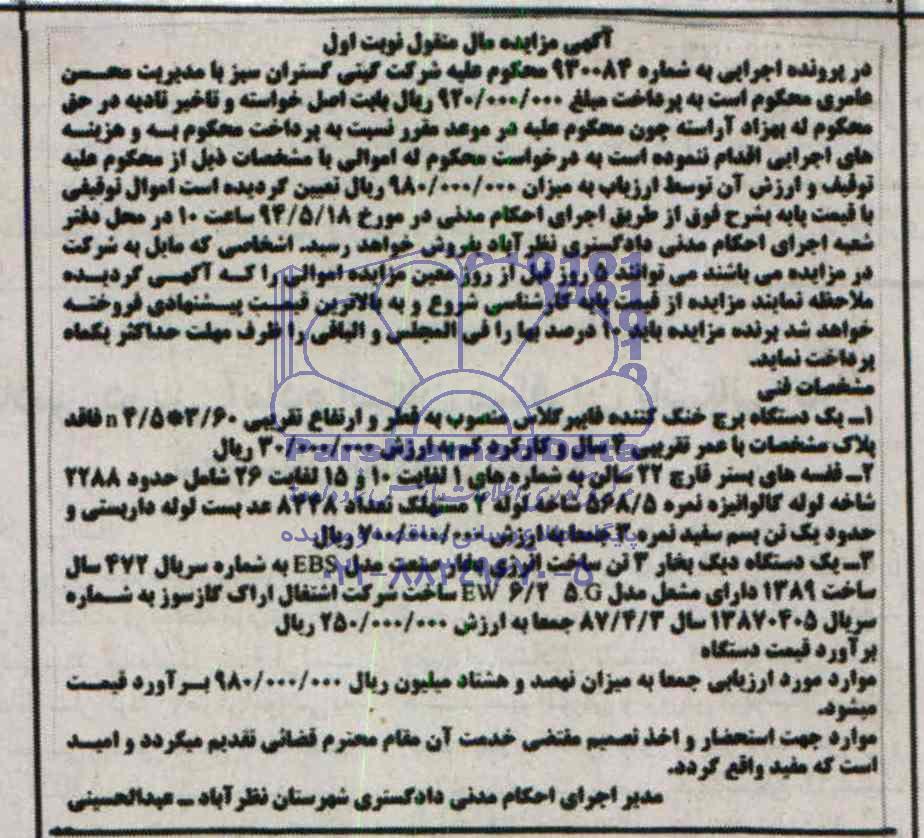 آگهی مزایده مال منقول نوبت اول
در پرونده اجرایی به شماره ۹۳۰۰۸۴ محکوم علیه شرکت گیتی گستران سبز با مدیریت محسن
عامری محکوم است به پرداخت مبلغ ۹۲۰/۰۰۰/۰۰۰ ریال بابت اصل خواسته و تاخیر تادیه در حق
محکوم له بهزاد آراسته چون محکوم علیه در موعد مقرر نسبت به پرداخت محکوم به و هزینه
های اجرایی اقدام ننموده است به درخواست محکوم له اموالی با مشخصات ذیل از محکوم علیه
توقیف و ارزش آن توسط ارزیاب به میزان ۹۸۰/۰۰۰/۰۰۰ ریال تعیین گردیده است اموال توقیفی
با قیمت پایه بشرح فوق از طریق اجرای احکام مدنی در مورخ ۹۴/۵/۱۸ ساعت ۱۰ در محل دفتر
شعبه اجرای احکام مدنی دادگستری نظرآباد بفروش خواهد رسید. اشخاصی که مایل به شرکت
در مزایده می باشند می توانند ۵ روز قبل از روز معین مزایده اموالی را که آگهی گردیده
ملاحظه نمایند مزایده از قیمت پایه کارشناسی شروع و به بالاترین قیمت پیشنهادی فروخته
خواهد شد برنده مزایده باید ۱۰ درصد بها را فی المجلس و الباقی را ظرف مهلت حداکثر یکماه
پرداخت نماید.
مشخصات فنی
۱ـ یک دستگاه برج خنک کننده فایبرگلاس منصوب به قطر و ارتفاع تقریبی ۳/۶۰*۴/۵ n فاقد
پلاک مشخصات با عمر تقریبی ۴ سال و کارکرد کم به ارزش ۳۰/۰۰۰/۰۰۰ ریال
۲ـ قفسه های بستر قارچ ۲۲ سالن به شماره های ۱ لغایت ۱۰ و ۱۵ لغایت ۲۶ شامل حدود ۲۲۸۸
شاخه لوله گالوانیزه نمره ۵ ۵۶۸/۵ شاخه لوله ۲ مستهلک تعداد ۸۲۲۸ عدد بست لوله داربستی و
حدود یک تن بسم سفید نمره ۳ جمعا به ارزش ۷۰۰/۰۰۰/۰۰۰ ریال
۳ـ یک دستگاه دیگ بخار ۳ تن ساخت انرژی بخار صنعت مدل EBS به شماره سریال ۴۷۲ سال
ساخت ۱۳۸۹ دارای مشعل مدل EW ۶/۲ ۵.G ساخت شرکت اشتغال اراک گازسوز به شماره
سریال ۱۳۸۷۰۴۰۵ سال ۸۷/۴/۳ جمعا به ارزش ۲۵۰/۰۰۰/۰۰۰ ریال
برآورد قیمت دستگاه
موارد مورد ارزیابی جمعا به میزان نهصد و هشتاد میلیون ریال ۹۸۰/۰۰۰/۰۰۰ برآورد قیمت
میشود.
موارد جهت استحضار و اخذ تصمیم مقتضی خدمت آن مقام محترم قضائی تقدیم میگردد و امید
است که مفید واقع گردد.
مدیر اجرای احکام مدنی دادگستری شهرستان نظرآباد ـ عبدالحسینی
ParsNamadData
۰۲۱-۸۸۳۴۹۶۷۰-۵